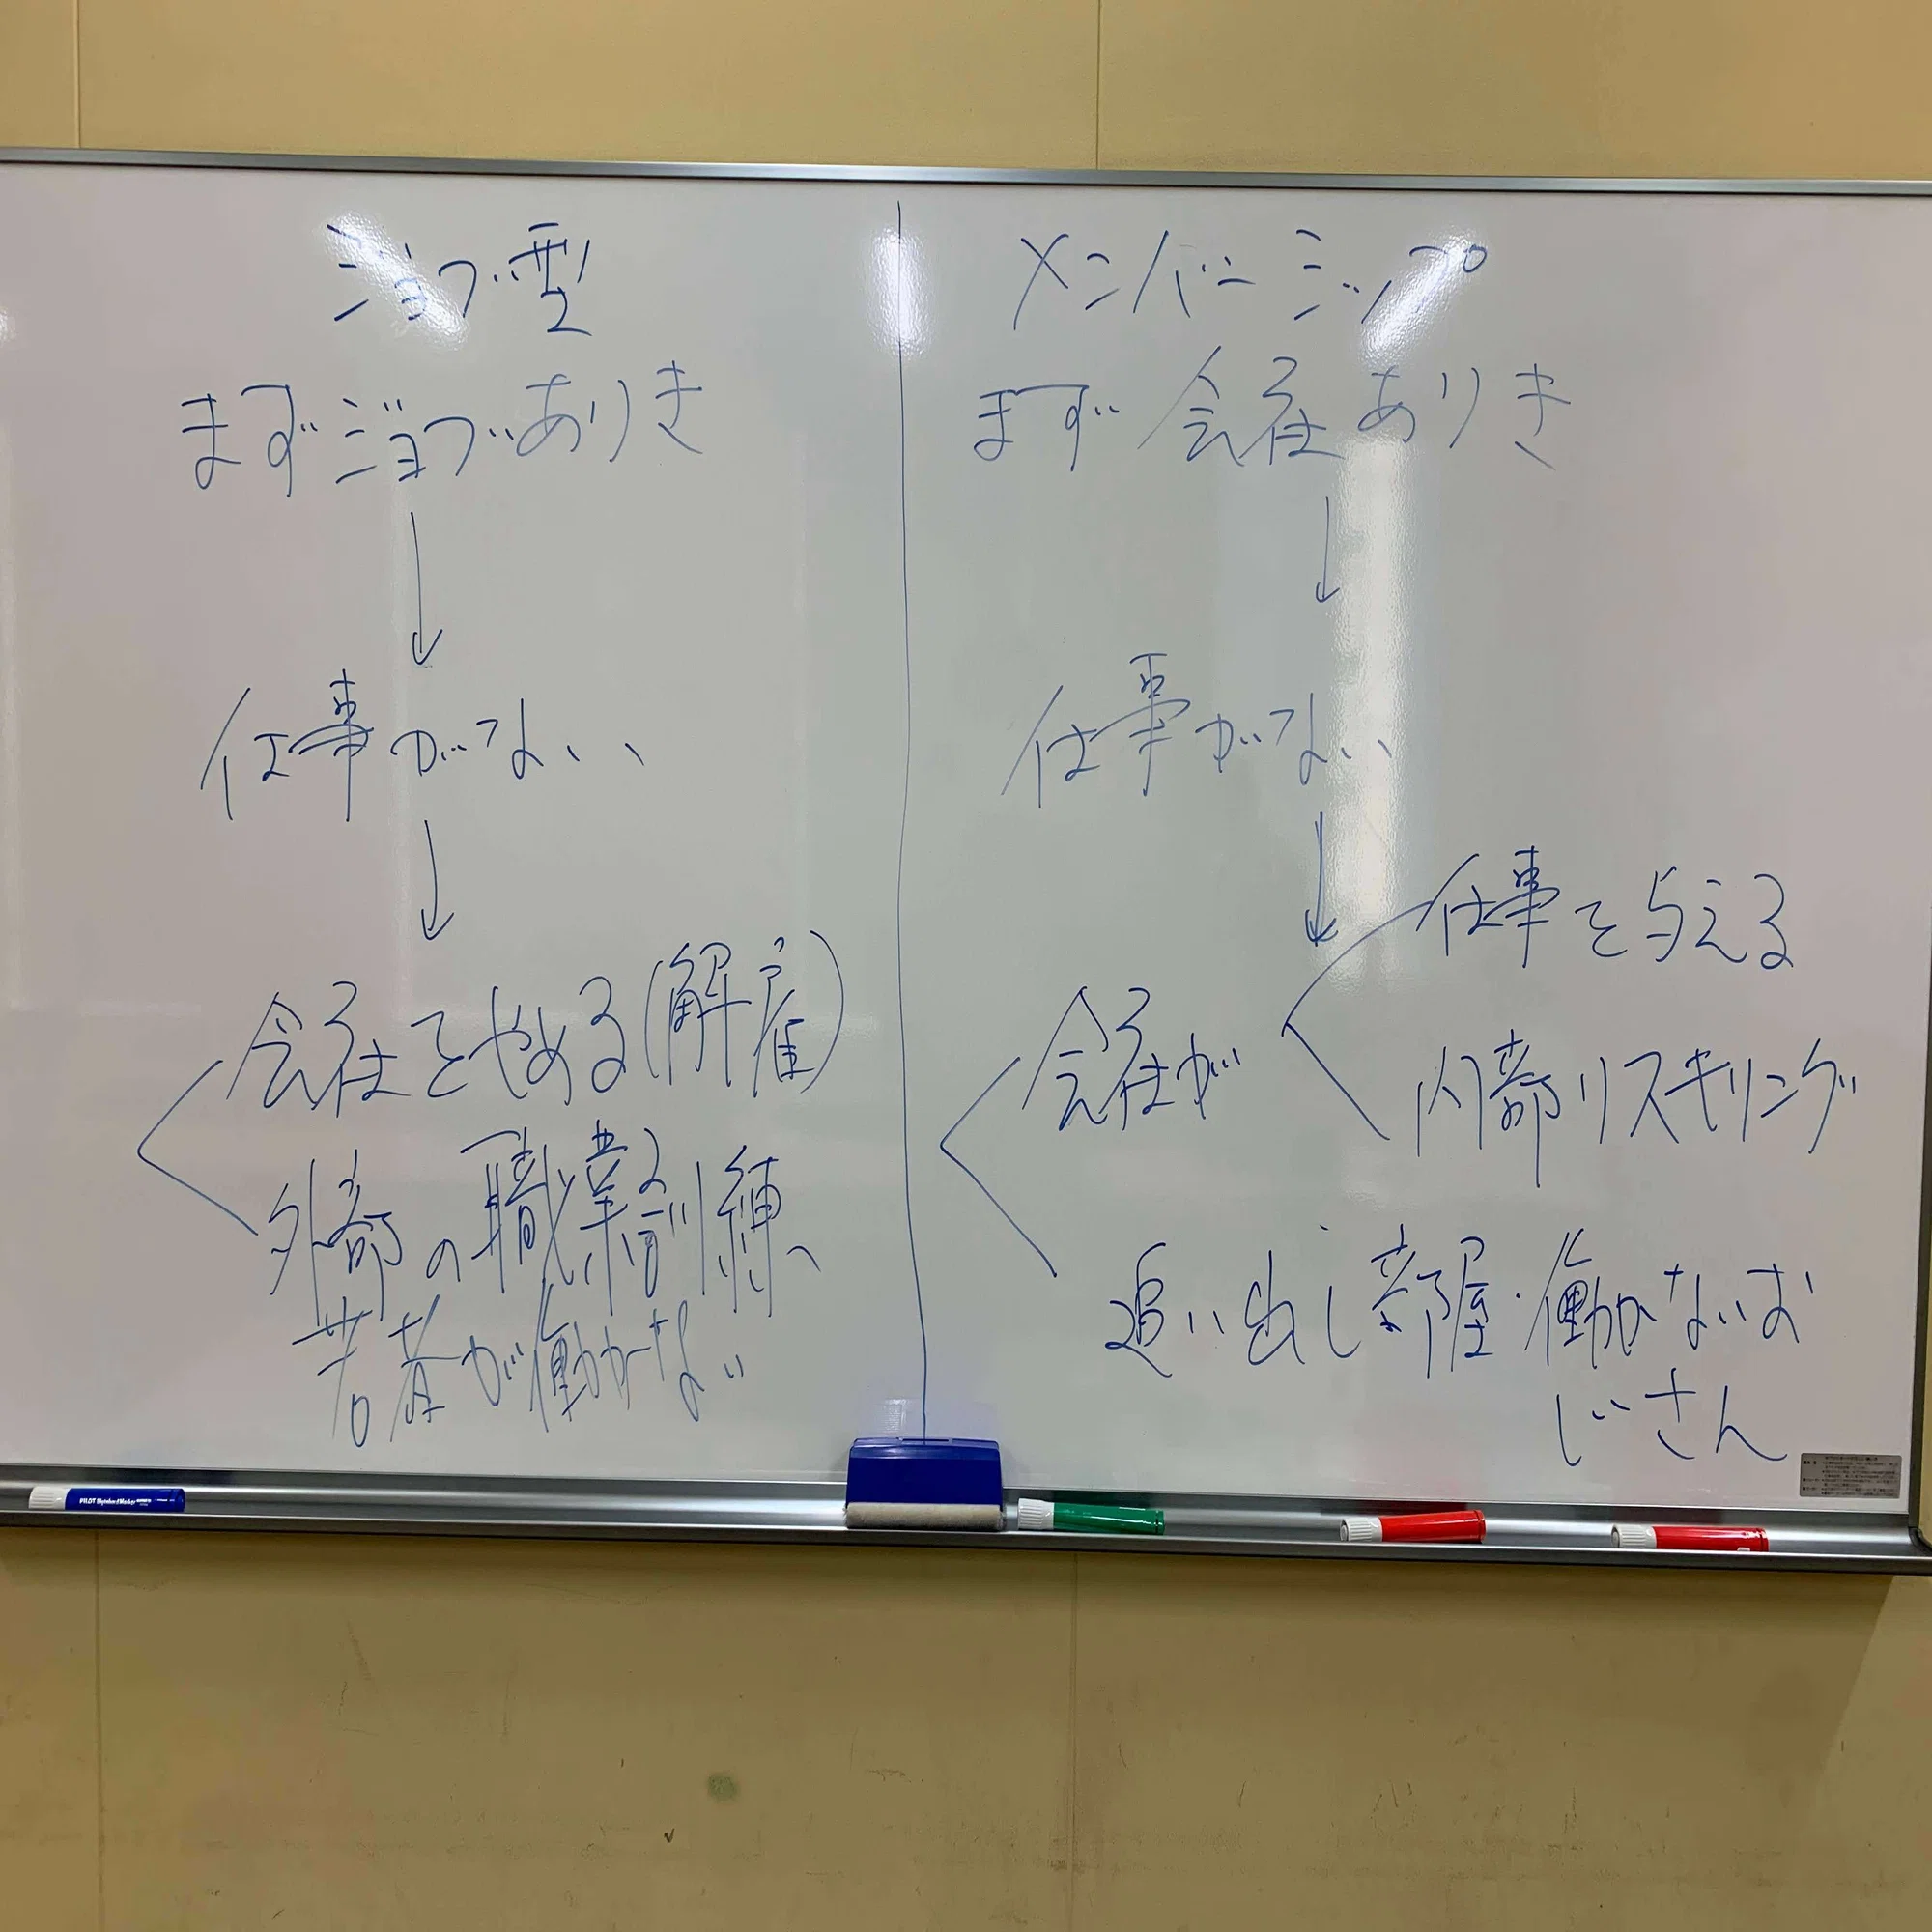 ジョブ型
まずジョブありき
仕事がない
会社をやめる(解雇)
外部の職業訓練、
若者が働かない
メンバーシップ
まず会社ありき
仕事がない
仕事を与える
会社が
内部リスキリング
追い出し部屋・働かないお
じさん
PILOT